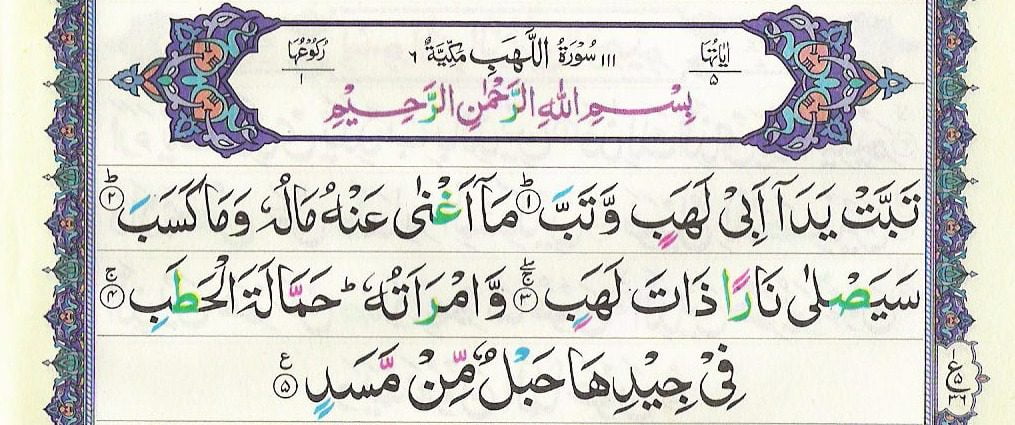 اٰیَاتُهَا ۵ ١١١ سُوْرَةُ اللَّهَبِ مَكِّيَّةٌ ٦ رُكُوْعُهَا ١
بِسْمِ اللهِ الرَّحْمٰنِ الرَّحِيْمِ
تَبَّتْ يَدَآ اَبِىْ لَهَبٍ وَّتَبَّ ؕ‏ ﴿۱﴾ مَاۤ اَغْنٰى عَنْهُ مَالُهٗ وَمَا كَسَبَ ؕ‏ ﴿۲﴾
سَيَصْلٰى نَارًا ذَاتَ لَهَبٍ ۖۚ ﴿۳﴾ وَّامْرَاَتُهٗ ؕ حَمَّالَةَ الْحَطَبِ ۚ‏ ﴿۴﴾
فِىْ جِيْدِهَا حَبْلٌ مِّنْ مَّسَدٍ ﴿۵﴾ ع
ع ۵ ۳۶